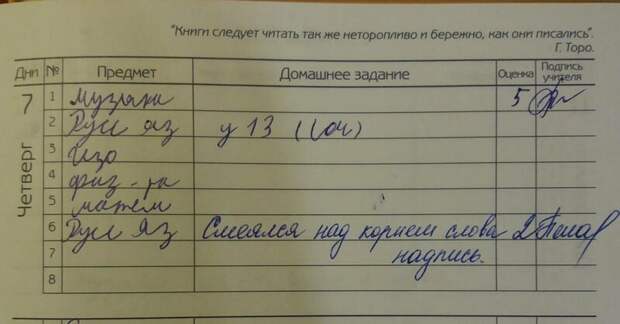 "Книги следует читать так же неторопливо и бережно, как они писались".
Г. Торо.
Дни № Предмет Домашнее задание Оценка Подпись учителя
7 Четверг
1 Музыка 5
2 Русс яз у 13 (
3 Изо
4 физ-ра
5 матем
6 Русс Яз Смеялся над корнем слова 2
7 надпись.
8